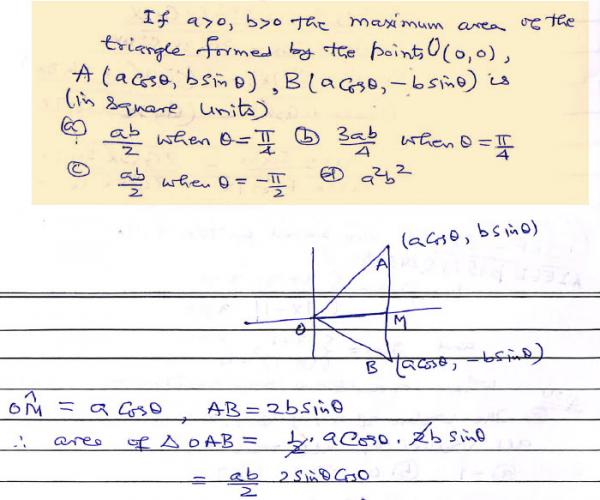 If a>0, b>0 the maximum area of the
triangle formed by the points O(0,0),
A (a cosθ, b sinθ), B (a cosθ, -b sinθ) is
(in square units)
(a) ab/2 when θ = π/4 (b) 3ab/4 when θ = π/4
(c) ab/2 when θ = -π/2 (d) a²b²
(a cosθ, b sinθ)
A
O M
B (a cosθ, -b sinθ)
OM̂ = a cosθ, AB = 2b sinθ
∴ area of Δ OAB = 1/2 · a cosθ · 2b sinθ
= ab/2 2 sinθ cosθ